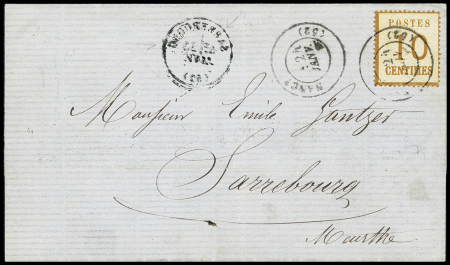 POSTES
10
CENTIMES
NANCY
(52)
(52)
Monsieur Emile Gantzer
Sarrebourg
Meurthe